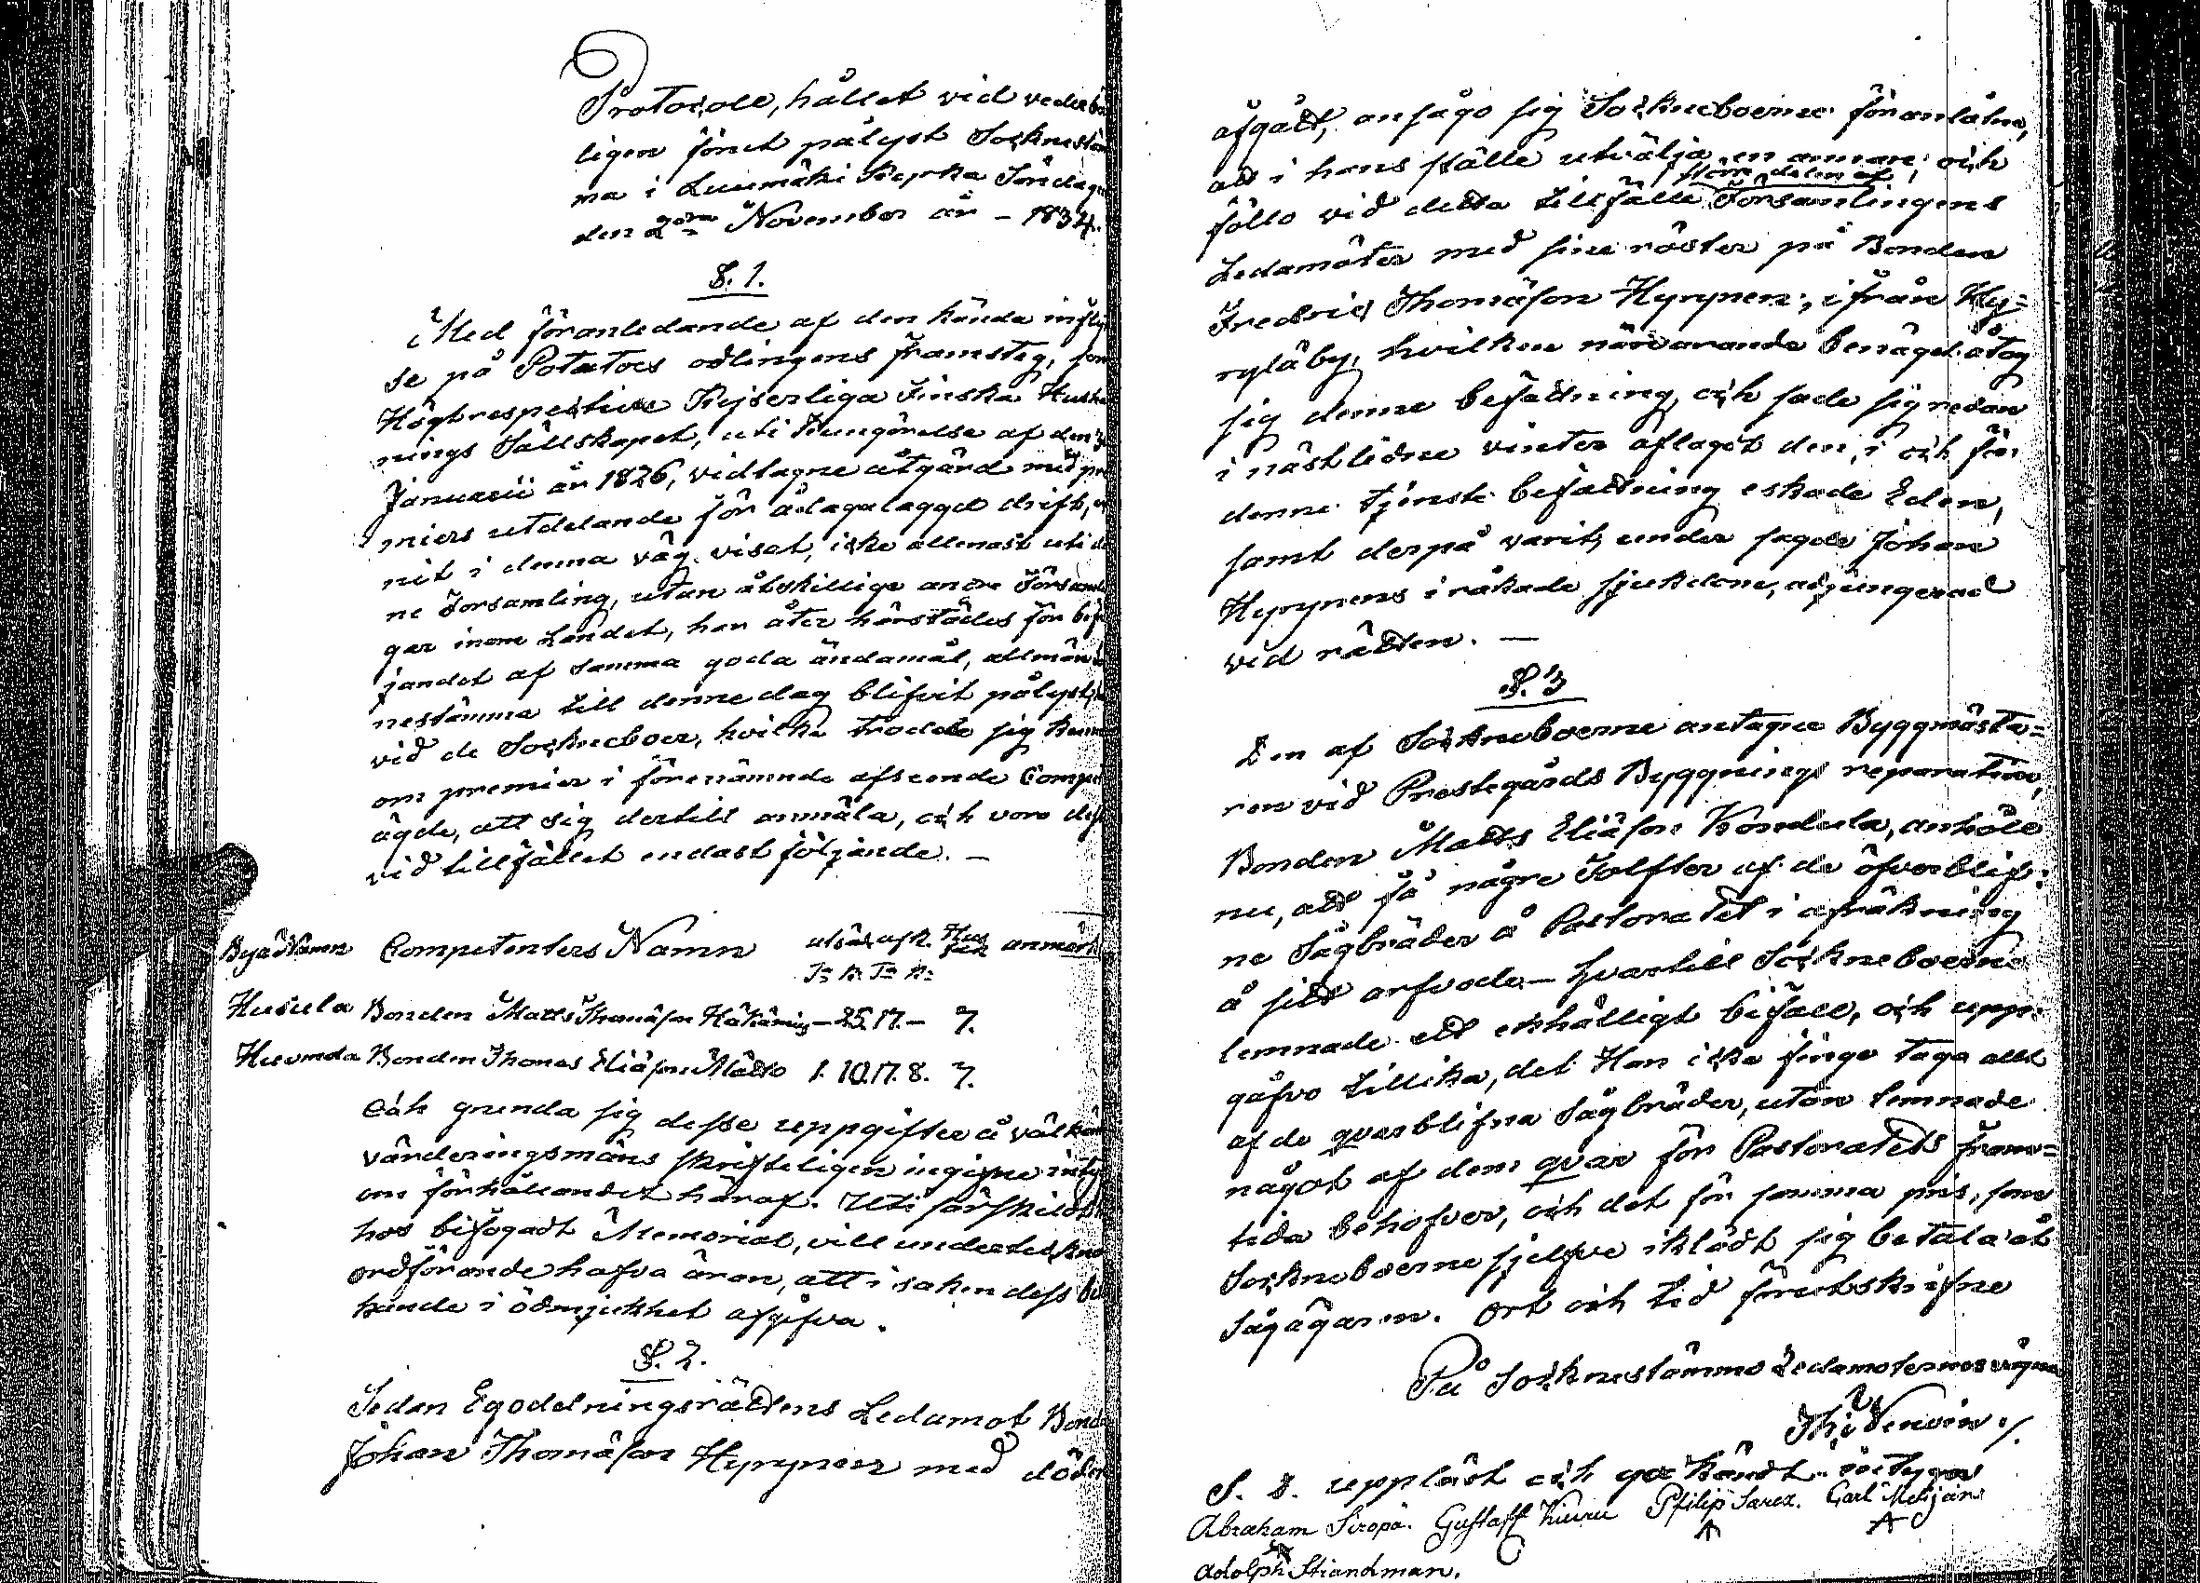 Protocoll, hållet vid vederbör
ligen förut pålyst Socknestäm
ma i Luumäki Kyrka Söndagen
den 2dra November år - 1834.
§. 1.
Med föranledande af den kända infly
se på Potatoes odlingens framsteg, som
Högtrespective Kejserliga Finska Hushåll
nings Sällskapet, uti Kungörelse af den
Januarii år 1826, vidtagne åtgärd med pre
miers utdelande för ådagalaggd drift,
nit i denna väg visat, icke allenast uti de
ne Forsamling, utan åtskillige andre Församlin
gar inom Landet, har åter härstädes för befr
jandet af samma goda ändamål, allmän
nestämma till denne dag blifvit pålyst,
vid de Sockneboer, hvilka trodde sig kunna
om premier i förenämnde afseende Compe
ägde, att sig dertill anmäla, och voro desse
vid tillfället endast följande. —
Byä Namn Competenters Namn utsäd. afk. anmärk
Tr. K. Tr. K.
Husula Bonden Matts Thomäson Häkämies — 25. 17. — 7.
Huomda Bonden Thomas Eliäson Mättö 1. 10. 17. 8. 7.
och grunda sig desse uppgifter å välkän
värderingsmäns skrifteligen ingifne intyg
om förhållandet häraf. Uti särskildt
hos bifogadt Memorial, vill undertecknad
ordförande hafva äran, att i saken dess be
kände i ödmjukhet afgifva.
§. 2.
Sedan Egodelningsrättens Ledamot Bonden
Johan Thomäson Hyrynen med döden
afgått, ansågo sig Sockneboerne föranlåtne,
att i hans ställe utvälja en annan; och
större delen af
föllo vid detta tillfälle Församlingens
Ledamöter med sine röster på Bonden
Fredric Thomäson Hyrynen, ifrån Hy=
rylä by, hvilken närvarande benäget åtog
sig denne befattning, och sade sig redan
i nästledne vinter aflagdt den, i och för
denne tjenste befattning eskade Eden,
samt derpå varit, under sagde Johan
Hyrynens iråkade sjukdom, adjungerad
vid rätten. —
§. 3
Den af Sockneboerne antagne Byggmästa=
ren vid Prestegårds Byggnings reparation,
Bonden Matts Eliäson Kondula, anhöll
nu, att få några Tolfter af de öfverblif=
ne Sågbräder å Pastoratet i afräkning
å sitt arfvode — hvartill Sockneboerne
lemnade ett enhälligt bifall, och upp=
gåfvo tillika, det Han icke finge taga allt
af de qvarblifna Sågbräder, utan lemnade
något af dem qvar för Pastoratets fram=
tida behofver, och det för samma pris, som
Sockneboerne sjelfve iklädt sig betala åt
Sågägaren. Ort och tid förutskrifne
På Socknestämmo Ledamoternas vägnar
Th: Wenoin ./.
S. D. uppläst och godkändt, intygar
Abraham Siropä. Gustaff Kiuru Philip Sarez. Carl Meljain
Adolph Strandman.